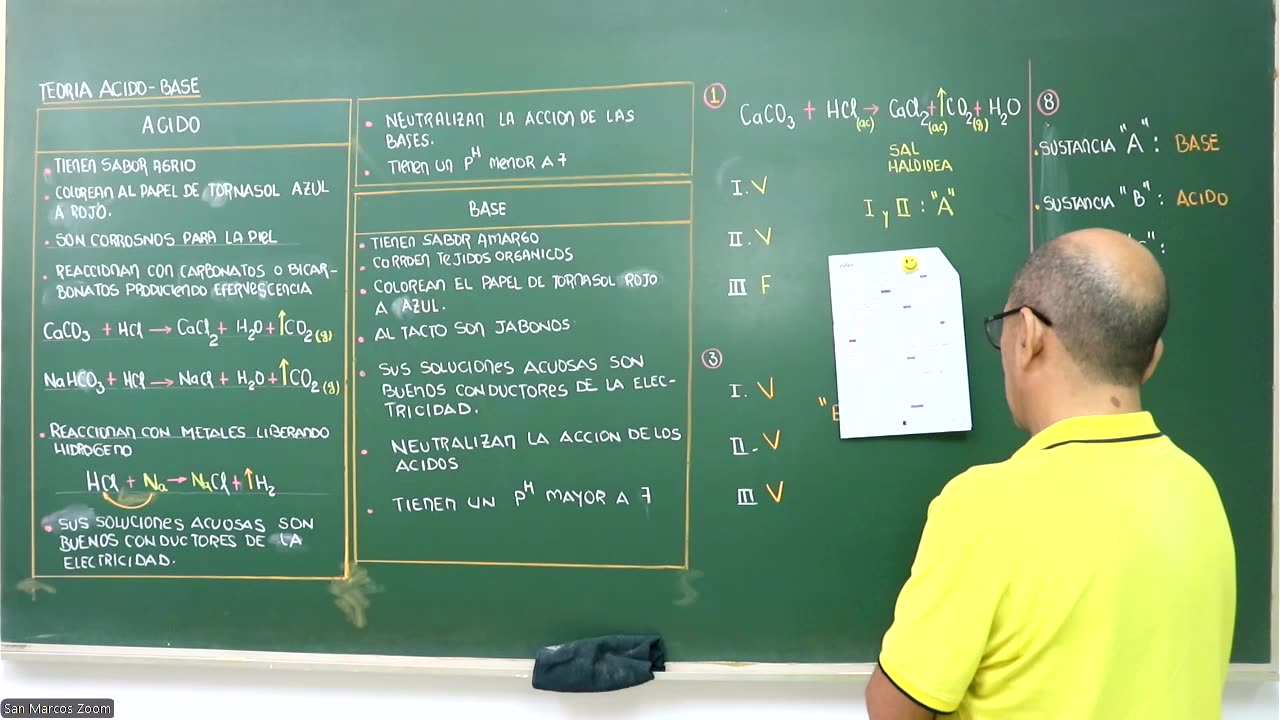 TEORIA ACIDO-BASE
ACIDO
• TIENEN SABOR AGRIO
• COLOREAN AL PAPEL DE TORNASOL AZUL
A ROJO.
• SON CORROSIVOS PARA LA PIEL
• REACCIONAN CON CARBONATOS O BICAR-
BONATOS PRODUCIENDO EFERVESCENCIA
CaCO₃ + HCl → CaCl₂ + H₂O + ↑CO₂(g)
NaHCO₃ + HCl → NaCl + H₂O + ↑CO₂(g)
• REACCIONAN CON METALES LIBERANDO
HIDROGENO
HCl + Na → NaCl + ↑H₂
• SUS SOLUCIONES ACUOSAS SON
BUENOS CONDUCTORES DE LA
ELECTRICIDAD.
• NEUTRALIZAN LA ACCION DE LAS
BASES.
• TIENEN UN PH MENOR A 7
BASE
• TIENEN SABOR AMARGO
• CORROEN TEJIDOS ORGANICOS
• COLOREAN EL PAPEL DE TORNASOL ROJO
A AZUL.
• AL TACTO SON JABONOS
• SUS SOLUCIONES ACUOSAS SON
BUENOS CONDUCTORES DE LA ELEC-
TRICIDAD.
• NEUTRALIZAN LA ACCION DE LOS
ACIDOS
• TIENEN UN PH MAYOR A 7
1
CaCO₃ + HCl(ac) → CaCl₂(ac) + ↑CO₂(g) + H₂O
SAL
HALOIDEA
I. V
I y II : "A"
II. V
III F
3
I. V
II. V
III V
8
• SUSTANCIA "A" : BASE
• SUSTANCIA "B" : ACIDO
San Marcos Zoom